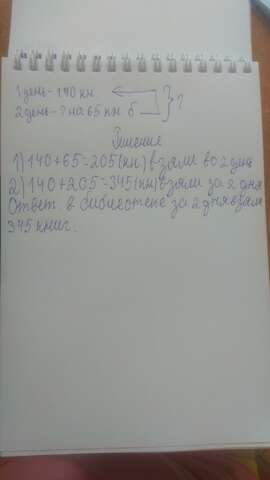 1 день - 140 кн
2 день - ? на 65 кн б } ?
Решение
1) 140 + 65 = 205 (кн) взяли во 2 день
2) 140 + 205 = 345 (кн) взяли за 2 дня
Ответ. в библиотеке за 2 дня взяли
345 книг.